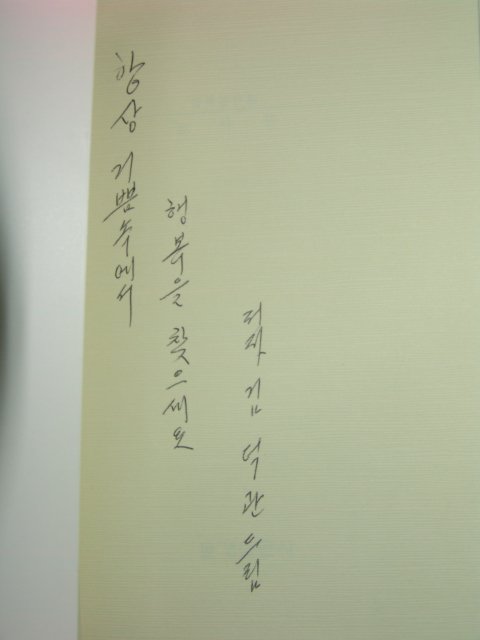 항상 기쁨속에서
행복을 찾으세요
저자 김 덕 관 드림